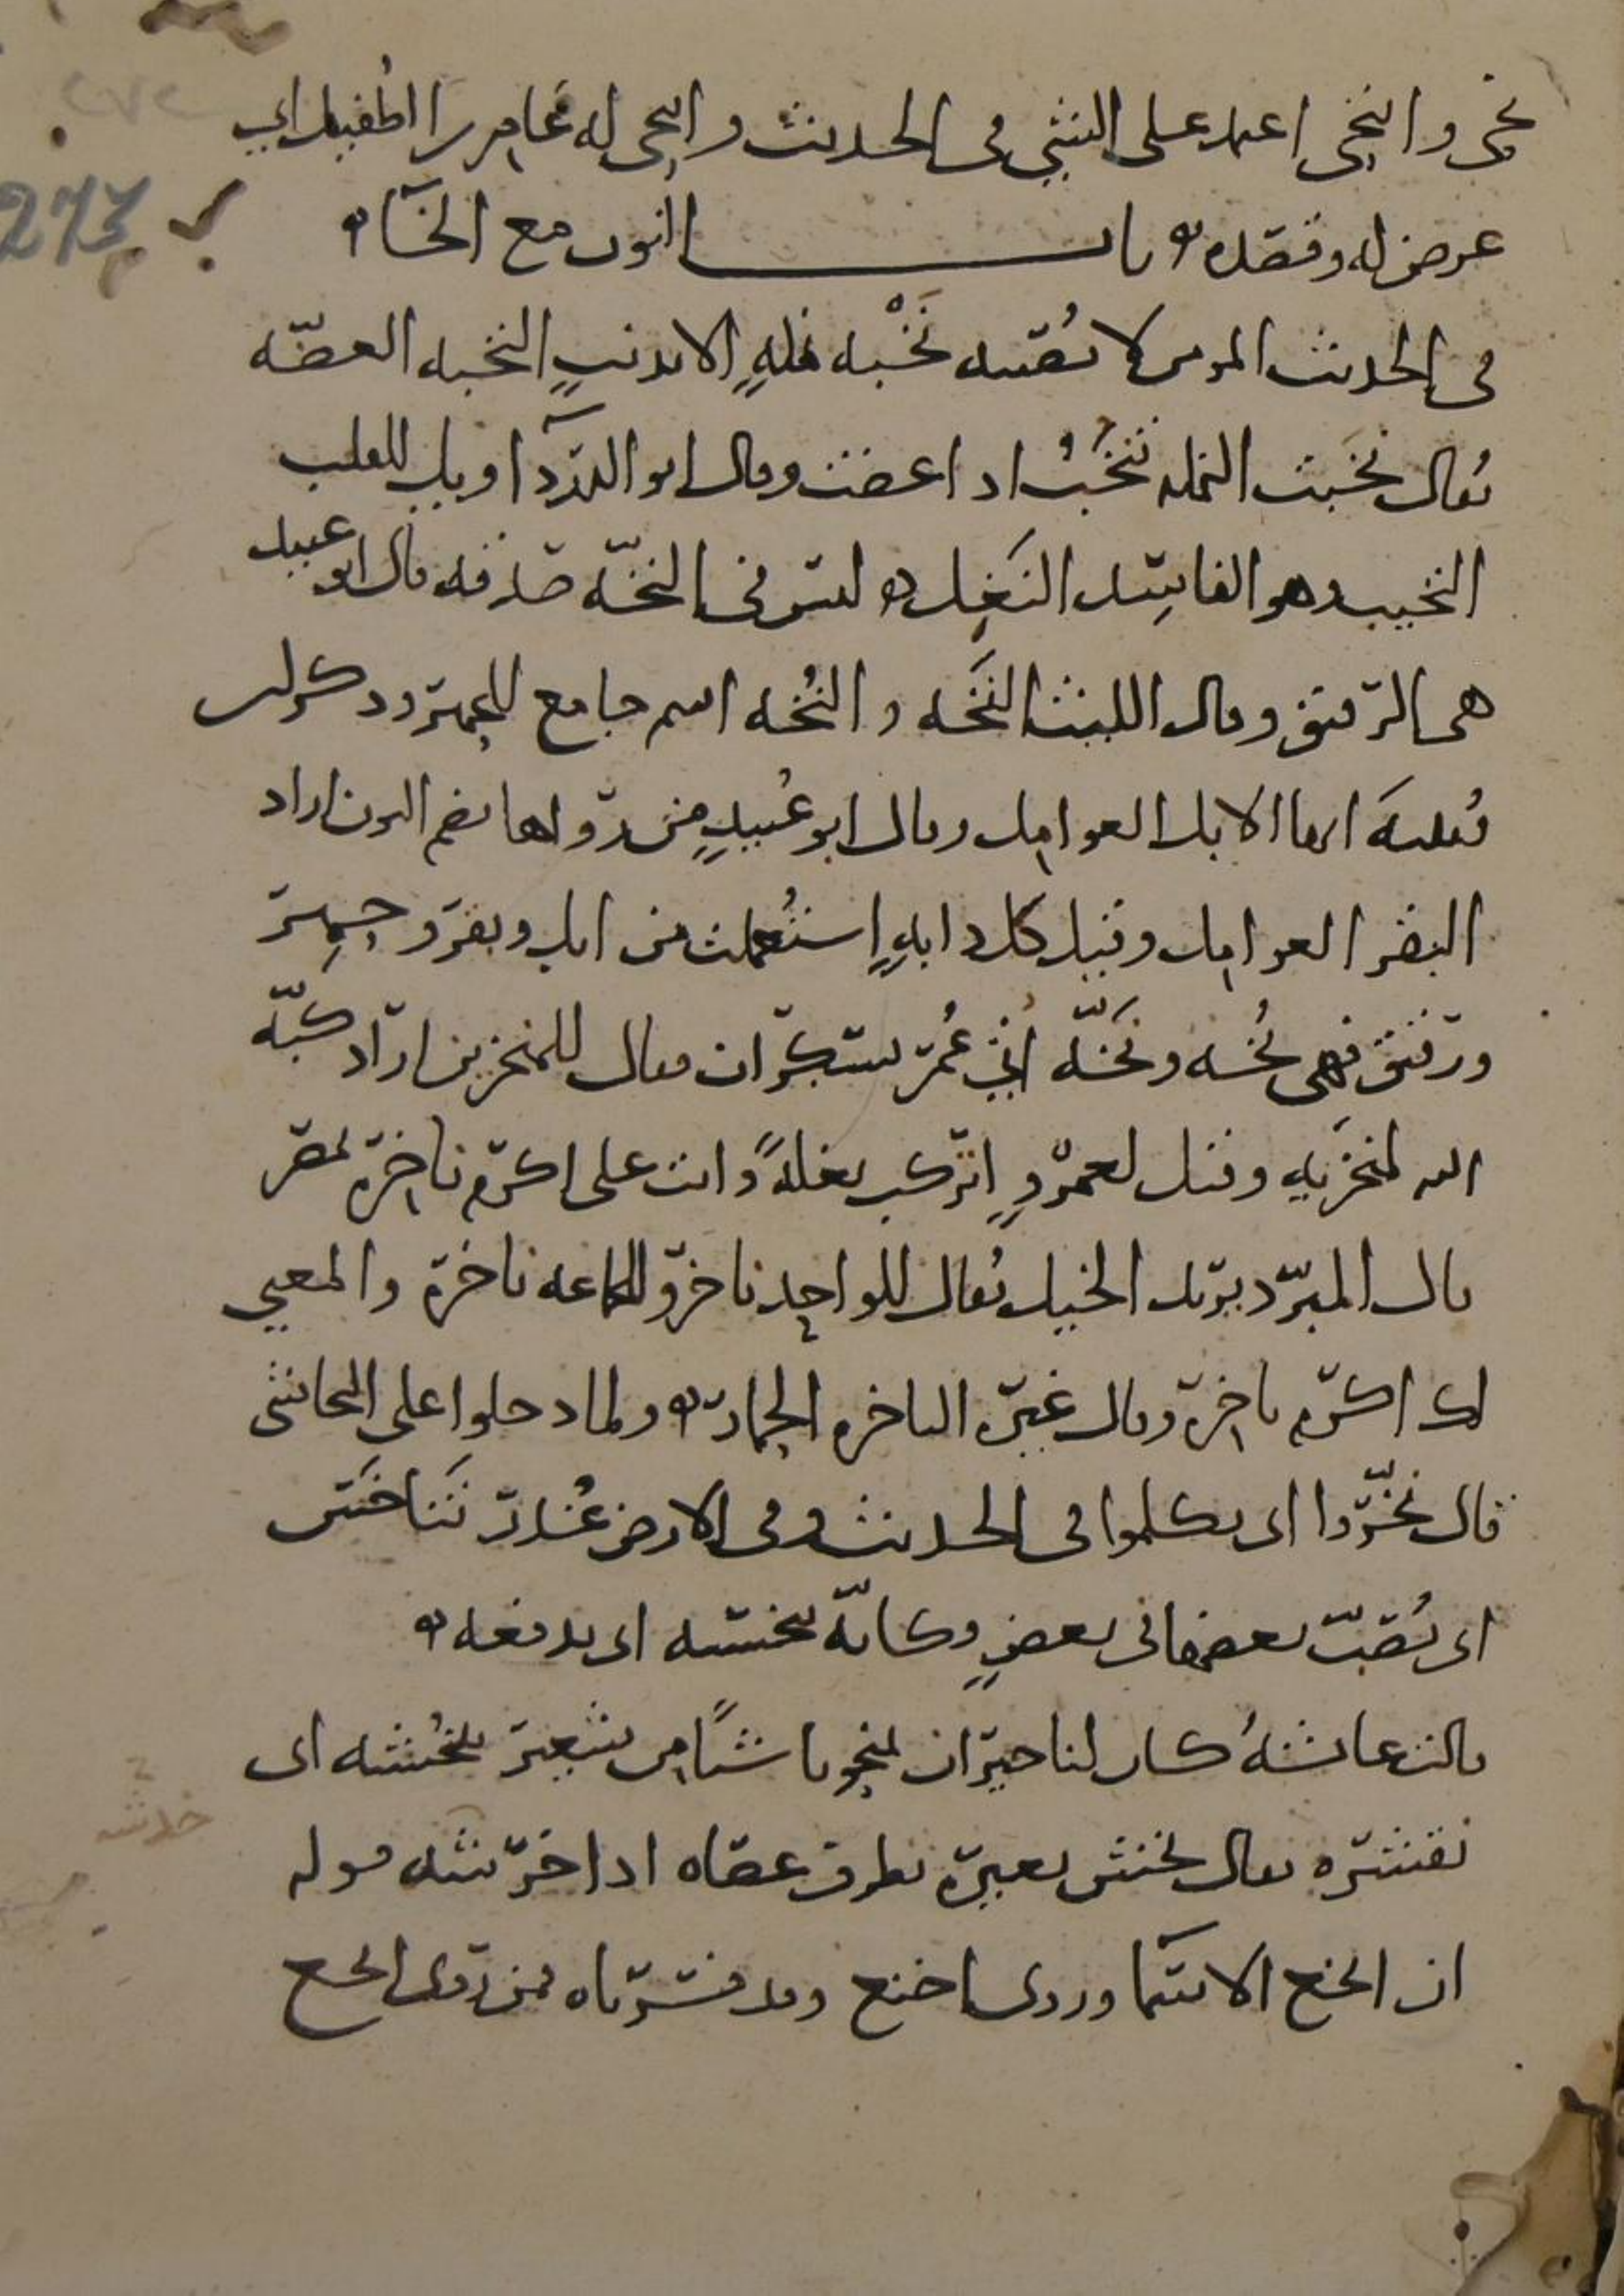 نحى وانتحى اعتمد على الشي في الحديث وانتحى له عامر بن الطفيل اي
عرض له وقصده باب النون مع الخاء
في الحديث المومن لا تصيبه نخبة نملةٍ الا بذنبٍ النخبة العضّة
يُقال نخبت النملة تنخُب اذا عضت وقال ابو الدرداء ويل للقلب
النخيب وهو الفاسد النَغِل ليس في النخّة صدقة قال ابو عبيد
هي الرقيق وقال الليث النَخة والنُخة اسم جامع للحمير وذكر لي
ثعلب انها الابل العوامل وقال ابو عُبيدٍ من رواها بضم النون اراد
البقر العوامل وقيل كل دابةٍ استُعملت من ابل وبقر وحمير
ورقيق فهي نُخة ونَخّة اتي عُمر بسكران فقال للمنخرين اراد كبّه
الله لمنخريه وقيل لعمروٍ اتركب بغلةً وانت على اكرم ناخرة بمصر
قال المبرّد يريد الخيل يُقال للواحد ناخر وللجماعة ناخرة والمعنى
لك اكرم ناخرة وقال غيره الناخرة الحمار ولما دخلوا على النجاشي
قال نخّروا اى تكلموا في الحديث وفي الارض غُدُر تَنَاخَس
اى يُصَبّ بعضها في بعضٍ وكانّه ينخسه اى يدفعه
قالت عائشةُ كان لنا جيران يمنحوناشئًا من شعير ننخُشه اى
نقشره يقال نخش بعيره بطرف عصاه اذا خرشه قوله
ان انخع الاسماء وروى اخنع وقد فسرناه فمن روى انخع